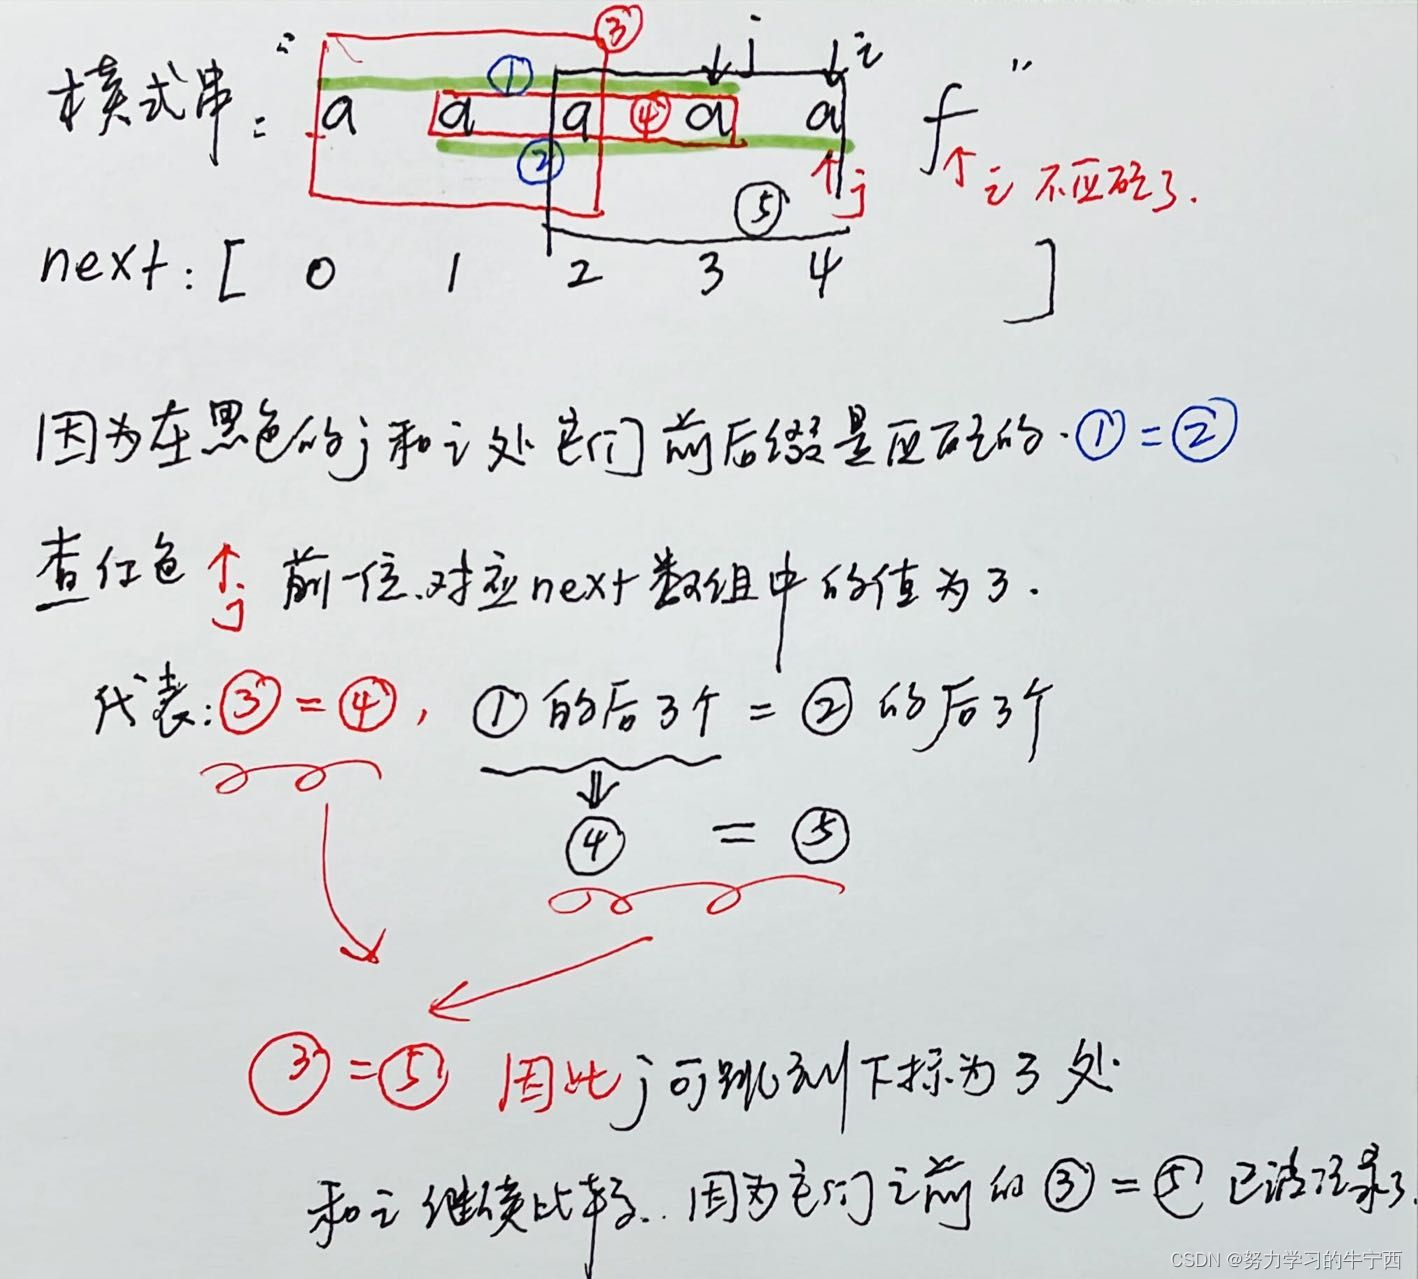 模式串：“ a a a a a f ”
③ ① ④ ② ⑤ j i
↑j ↑i 不匹配了.
next: [ 0 1 2 3 4 ]
因为在黑色的j和i处它们前后缀是匹配的. ①=②
查红色↑j 前一位.对应next数组中的值为3.
代表:③=④, ①的后3个=②的后3个
④ = ⑤
③=⑤ 因此j可跳到下标为3处.
和i继续比较..因为它们之前的③=⑤已被记录了.
CSDN @努力学习的牛宁西